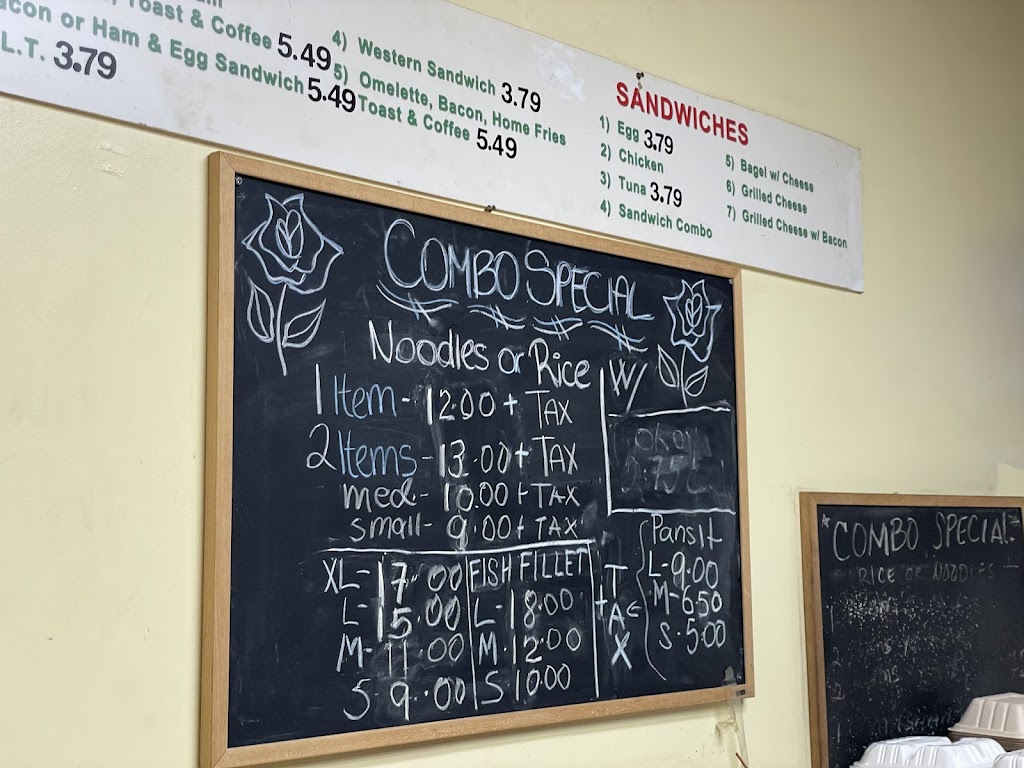 Toast & Coffee 5.49
or Ham & Egg Sandwich 5.49
L.T. 3.79
4) Western Sandwich 3.79
5) Omelette, Bacon, Home Fries
Toast & Coffee 5.49
SANDWICHES
1) Egg 3.79
2) Chicken
3) Tuna 3.79
4) Sandwich Combo
5) Bagel w/ Cheese
6) Grilled Cheese
7) Grilled Cheese w/ Bacon
COMBO SPECIAL
Noodles or Rice W/
1 Item - 12.00 + TAX
2 Items - 13.00 + TAX
med - 10.00 + TAX
small - 9.00 + TAX
XL - 17.00
L - 15.00
M - 11.00
S 9.00
FISH FILLET
L - 18.00
M - 12.00
S 10.00
+ TAX
PansIt
L - 9.00
M - 6.50
S - 5.00
COMBO SPECIAL
RICE OR NOODLES